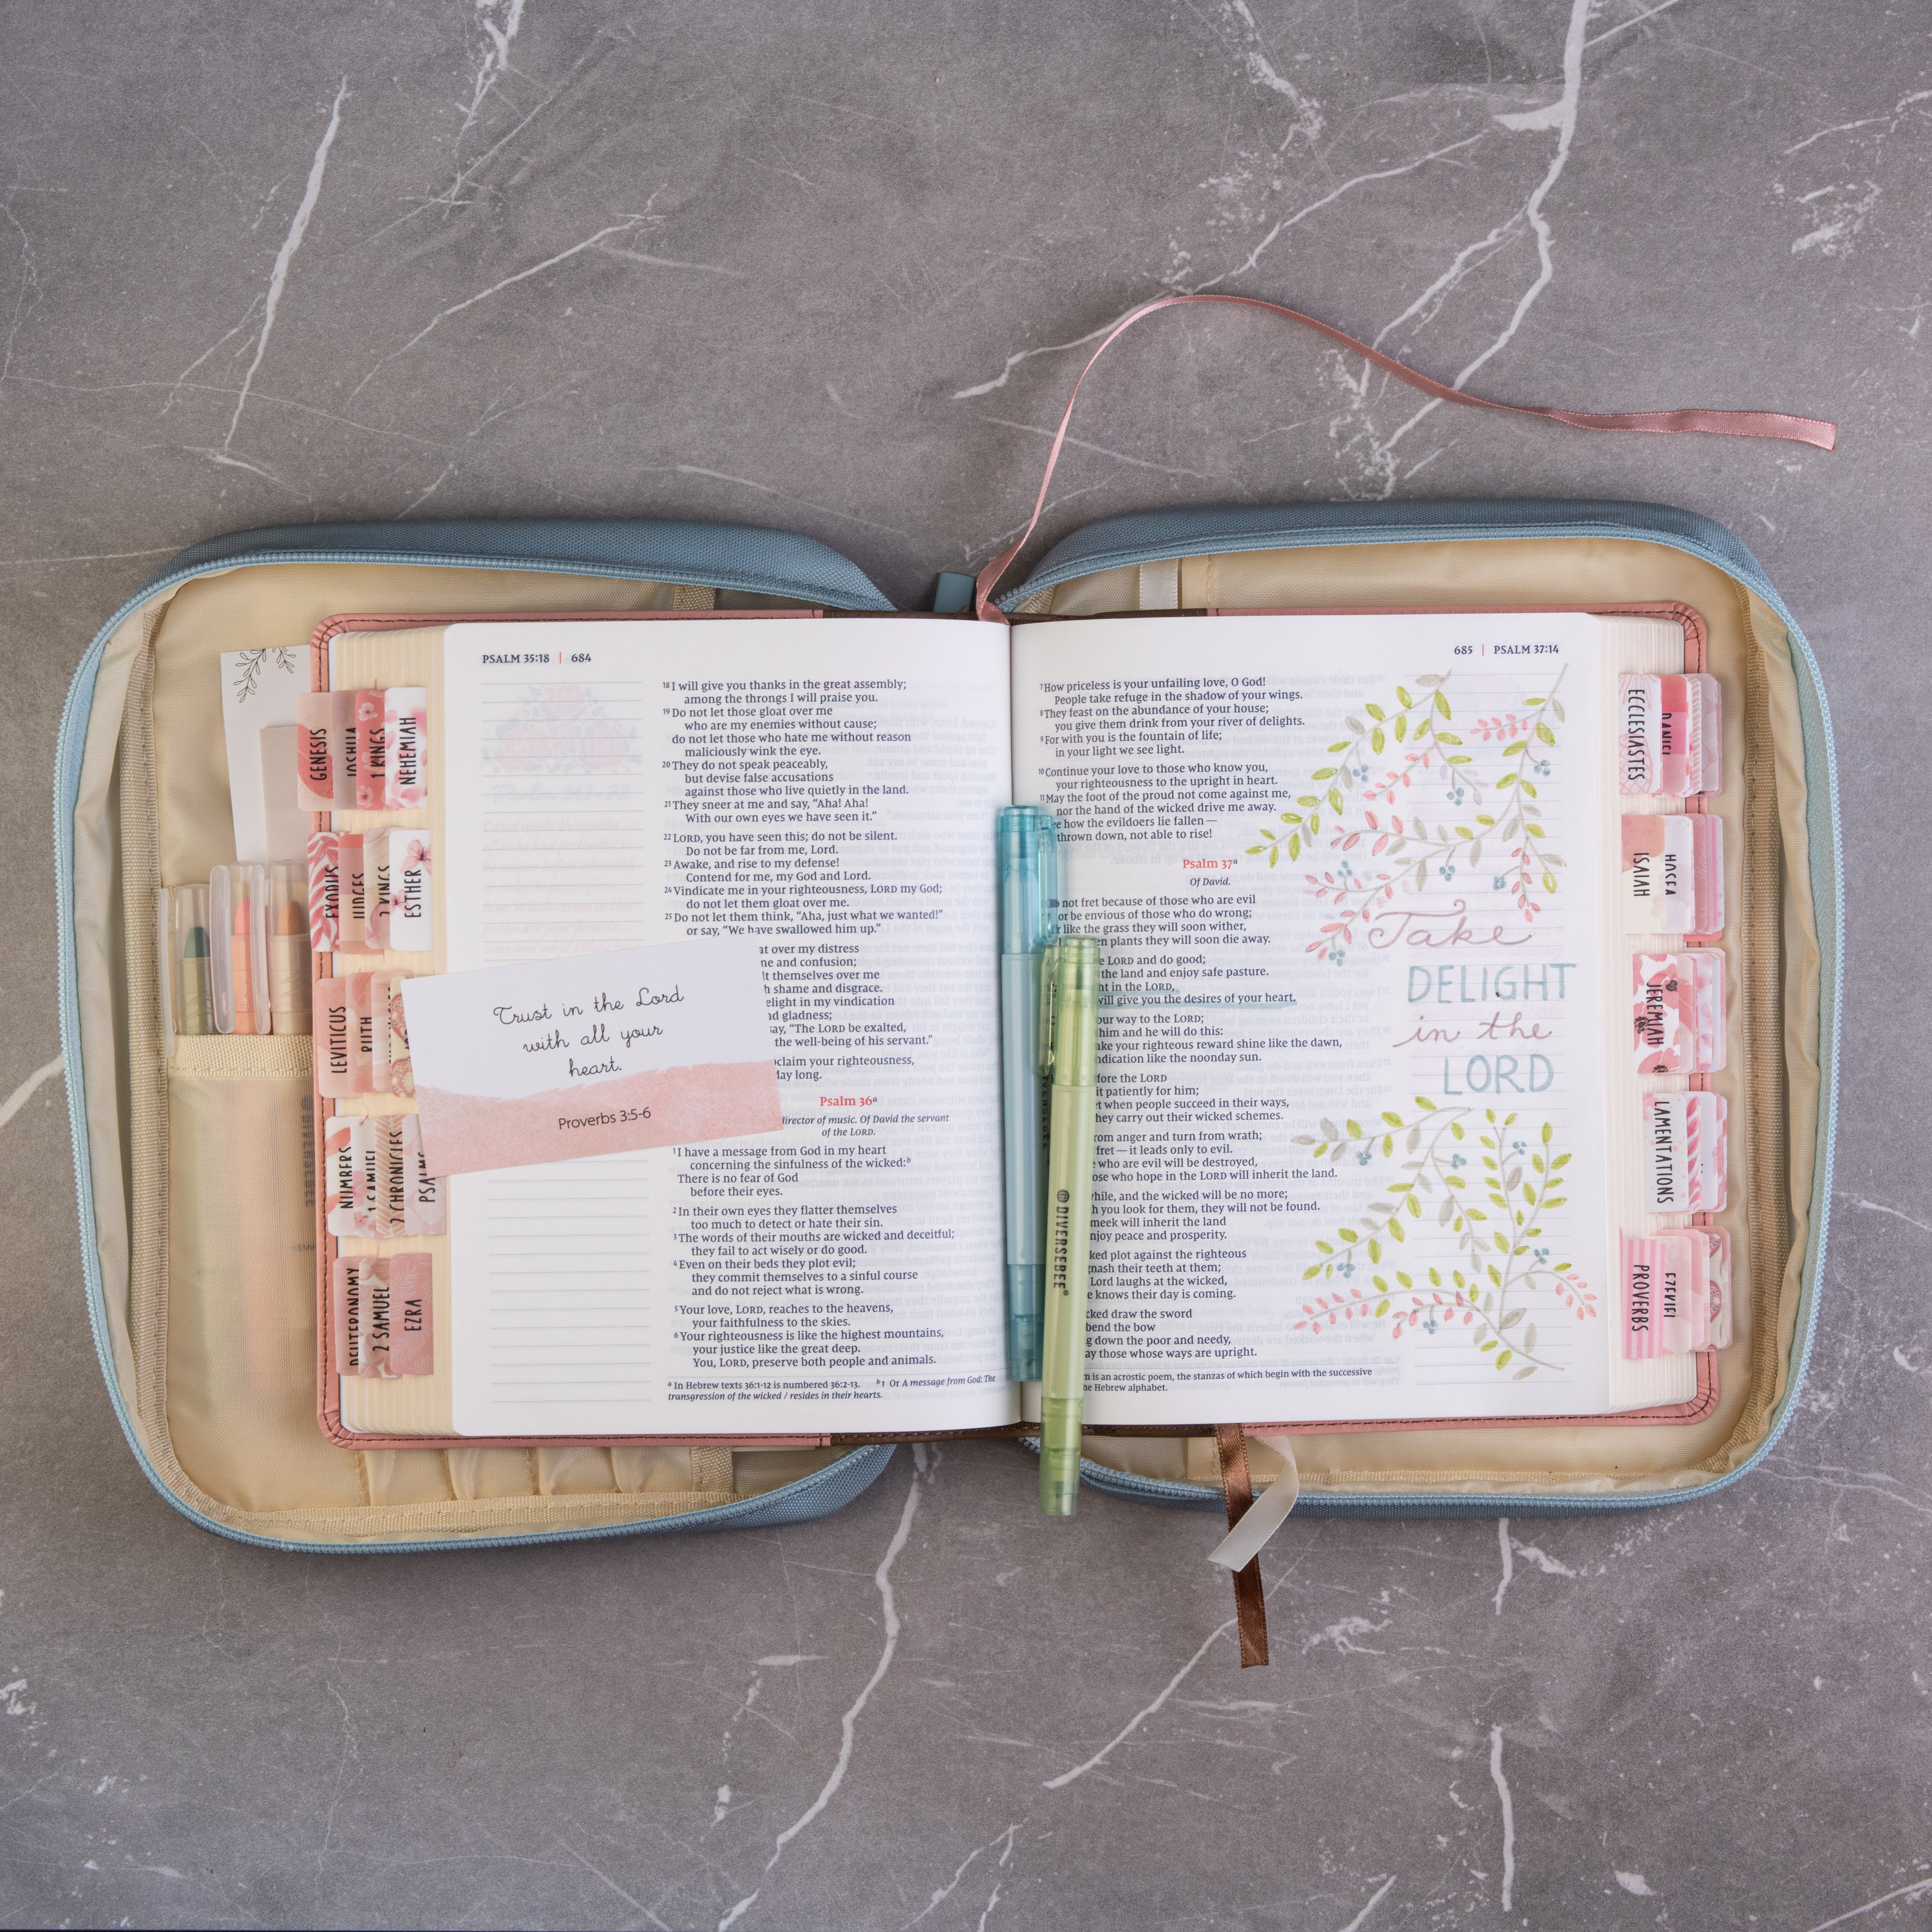 PSALM 35:18 | 684
18 I will give you thanks in the great assembly;
among the throngs I will praise you.
19 Do not let those gloat over me
who are my enemies without cause;
do not let those who hate me without reason
maliciously wink the eye.
20 They do not speak peaceably,
but devise false accusations
against those who live quietly in the land.
21 They sneer at me and say, “Aha! Aha!
With our own eyes we have seen it.”
22 LORD, you have seen this; do not be silent.
Do not be far from me, Lord.
23 Awake, and rise to my defense!
Contend for me, my God and Lord.
24 Vindicate me in your righteousness, LORD my God;
do not let them gloat over me.
25 Do not let them think, “Aha, just what we wanted!”
or say, “We have swallowed him up.”
at over my distress
and confusion;
themselves over me
shame and disgrace.
delight in my vindication
gladness;
say, “The LORD be exalted,
the well-being of his servant.”
your righteousness,
day long.
Psalm 36a
director of music. Of David the servant
of the LORD.
1 I have a message from God in my heart
concerning the sinfulness of the wicked:b
There is no fear of God
before their eyes.
2 In their own eyes they flatter themselves
too much to detect or hate their sin.
3 The words of their mouths are wicked and deceitful;
they fail to act wisely or do good.
4 Even on their beds they plot evil;
they commit themselves to a sinful course
and do not reject what is wrong.
5 Your love, LORD, reaches to the heavens,
your faithfulness to the skies.
6 Your righteousness is like the highest mountains,
your justice like the great deep.
You, LORD, preserve both people and animals.
a In Hebrew texts 36:1-12 is numbered 36:2-13. b 1 Or A message from God: The
transgression of the wicked / resides in their hearts.
Trust in the Lord
with all your
heart.
Proverbs 3:5-6
685 | PSALM 37:14
7 How priceless is your unfailing love, O God!
People take refuge in the shadow of your wings.
8 They feast on the abundance of your house;
you give them drink from your river of delights.
9 For with you is the fountain of life;
in your light we see light.
10 Continue your love to those who know you,
your righteousness to the upright in heart.
11 May the foot of the proud not come against me,
nor the hand of the wicked drive me away.
how the evildoers lie fallen —
thrown down, not able to rise!
Psalm 37a
Of David.
not fret because of those who are evil
or be envious of those who do wrong;
like the grass they will soon wither,
plants they will soon die away.
LORD and do good;
the land and enjoy safe pasture.
in the LORD,
will give you the desires of your heart.
your way to the LORD;
him and he will do this:
make your righteous reward shine like the dawn,
vindication like the noonday sun.
before the LORD
patiently for him;
when people succeed in their ways,
they carry out their wicked schemes.
from anger and turn from wrath;
fret — it leads only to evil.
who are evil will be destroyed,
those who hope in the LORD will inherit the land.
while, and the wicked will be no more;
you look for them, they will not be found.
meek will inherit the land
enjoy peace and prosperity.
plot against the righteous
gnash their teeth at them;
Lord laughs at the wicked,
knows their day is coming.
draw the sword
bend the bow
down the poor and needy,
those whose ways are upright.
is an acrostic poem, the stanzas of which begin with the successive
Hebrew alphabet.
Take
DELIGHT
in the
LORD
DIVERSEBEE®
GENESIS
JOSHUA
1 KINGS
NEHEMIAH
EXODUS
JUDGES
2 KINGS
ESTHER
LEVITICUS
RUTH
NUMBERS
1 SAMUEL
2 CHRONICLES
PSALMS
DEUTERONOMY
2 SAMUEL
EZRA
ECCLESIASTES
DANIEL
ISAIAH
HOSEA
JEREMIAH
LAMENTATIONS
PROVERBS
EZEKIEL